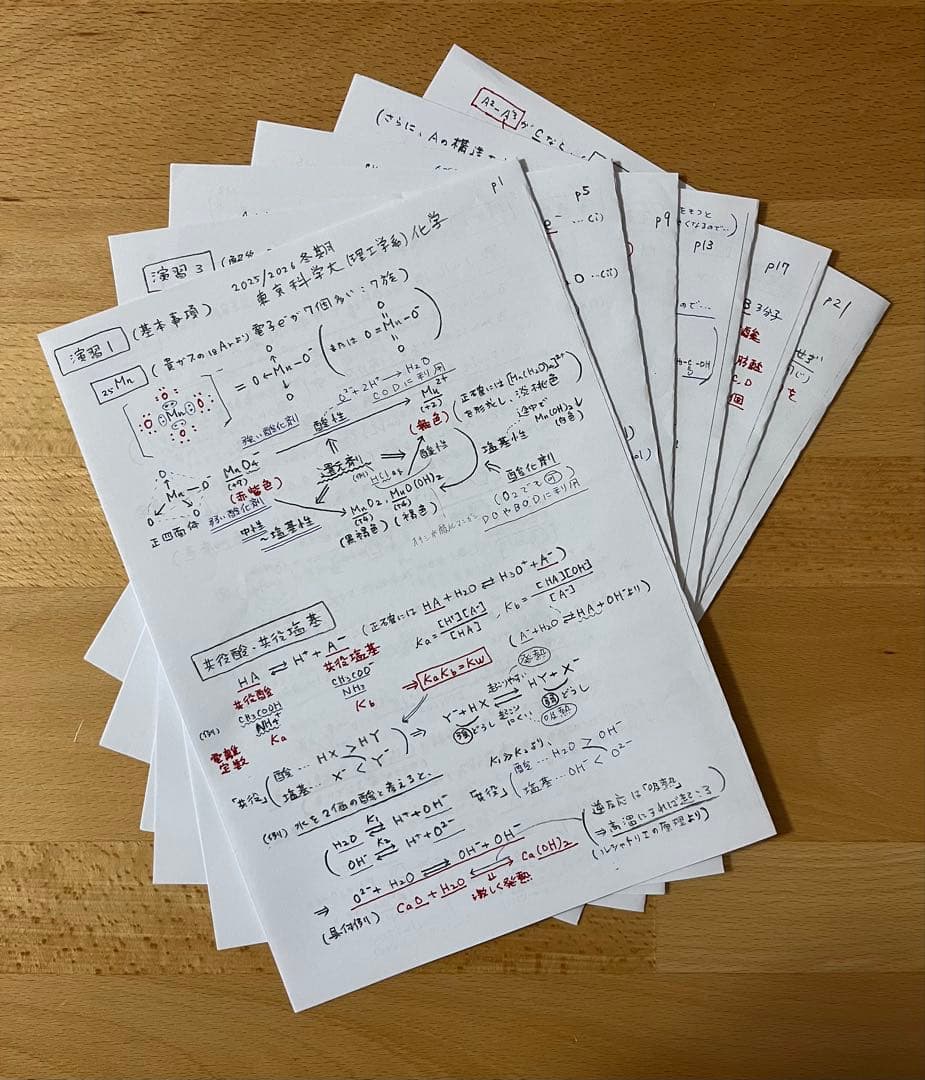 p1
2025/2026 冬期
東京科学大(理工学系)化学
演習1 (基本事項)
25Mn (貴ガスの18Arより電子e⁻が7個多い:7族)
Mn
= O←Mn-O⁻
O
O
(または O=Mn-O⁻)
O
O
O²⁻+2H⁺ → H₂O
CODに利用
強い酸化剤
酸性
Mn²⁺
(+2)
(正確には[Mn(H₂O)₆]²⁺
を形成し、淡桃色)
MnO₄⁻
(+7)
(赤紫色)
還元剤
(例) HClaq
酸性
塩基性
途中で
Mn(OH)₂↓
(白色)
正四面体
弱い酸化剤
中性~塩基性
MnO₂, MnO(OH)₂
(+4) (+4)
(黒褐色) (褐色)
酸化剤
(O₂でも可)
DOやBODに利用
共役酸・共役塩基
(正確には HA+H₂O ⇄ H₃O⁺+A⁻)
HA ⇄ H⁺ + A⁻
共役酸 共役塩基
(例) CH₃COOH CH₃COO⁻
NH₄⁺ NH₃
電離定数 Ka Kb
Ka=[H⁺][A⁻]/[HA], Kb=[HA][OH⁻]/[A⁻]
(A⁻+H₂O ⇄ HA+OH⁻より)
⇒ KaKb=Kw
「共役」(酸… HX > HY
塩基… X⁻ < Y⁻)
⇒ Y⁻+HX ⇄ HY+X⁻
発熱
起こりやすい
起こりにくい
吸熱
強どうし 弱どうし
(例) 水を2価の酸と考えると、
(H₂O ⇄ H⁺+OH⁻
K₁
OH⁻ ⇄ H⁺+O²⁻)
K₂
K₁≫K₂より、
「共役」(酸… H₂O > OH⁻
塩基… OH⁻ < O²⁻)
⇒ O²⁻+H₂O ⇄ OH⁻+OH⁻
(具体例) CaO+H₂O ⇄ Ca(OH)₂
激しく発熱
(逆反応は「吸熱」
⇒高温にすれば起こる
(ルシャトリエの原理より))
演習3
p5
…(i)
…(ii)
p9
(さらに、Aの構造
A²-A³が
p13
をもつと
くなるので…
ので…
p17
3分子
酸
C, D
p21
を